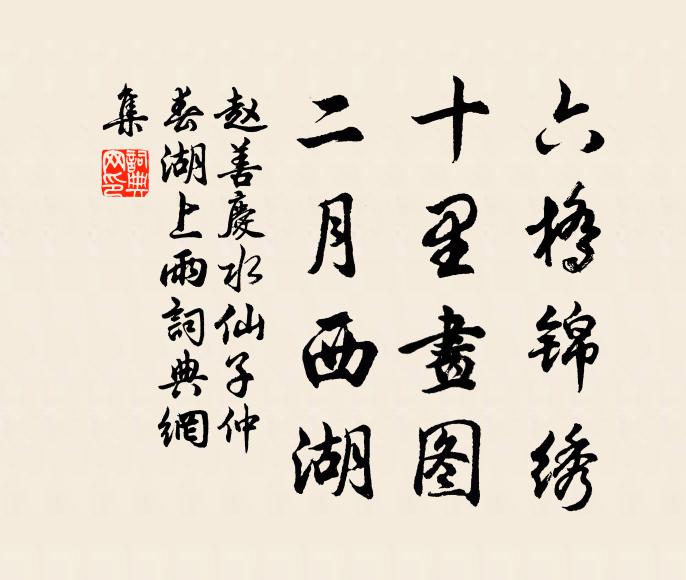 六橋锦绣
十里畫图
二月西湖
赵善慶水仙子仲
春湖上雨詞典網
集
詞典網印